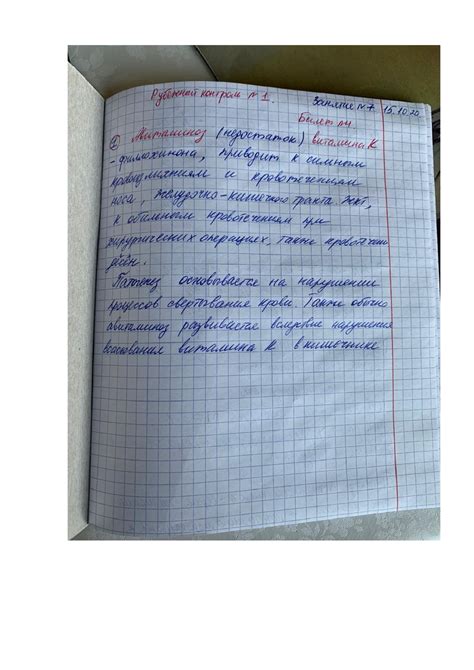 Рубежный контроль №1. Занятие №7 15.10.20
Билет №4
① Авитаминоз (недостаток) витамина К
- филлохинона, приводит к сильным
кровоизлияниям и кровотечениям
носа, желудочно-кишечного тракта ЖКТ,
к обильным кровотечениям при
хирургических операциях, также кровотечен
дёсен.
Патогенез основывается на нарушении
процессов свертывания крови. Также обычно
авитаминоз развивается вследствие нарушения
всасывания витамина К в кишечнике